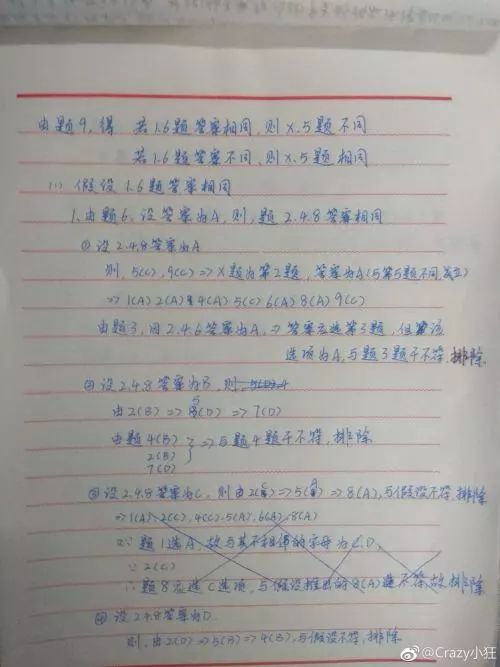 由题9,得 若1.6题答案相同,则X.5题不同
若1.6题答案不同,则X.5题相同
(1) 假设1.6题答案相同
1.由题6,设答案为A,则,题2.4.8答案相同
①设2.4.8答案为A
则,5(C),9(C)=>X题为第2题,答案为A(与第5题不同,成立)
=>1(A)2(A)4(A)5(C)6(A)8(A)9(C)
由题3,因2.4.6答案为A,=>答案应选第3题,但该
选项为A,与题3题干不符,排除
②设2.4.8答案为B,则,
由2(B)=>5(D)=>7(D)
由题4(B)
2(B)
7(D)
=>与题4题干不符,排除
③设2.4.8答案为C,则由2(C)=>5(A)=>8(A),与假设不符,排除
=>1(A),2(C),4(C).5(A),6(A),8(A)
∵题1选A,故与其不相邻的字母为C.D,
∵2(C)
∴题8应选C选项,与假设推出的8(A)不符,故,排除
④设2.4.8答案为D
则,由2(D)=>5(B)=>4(B),与假设不符,排除
@Crazy小狂